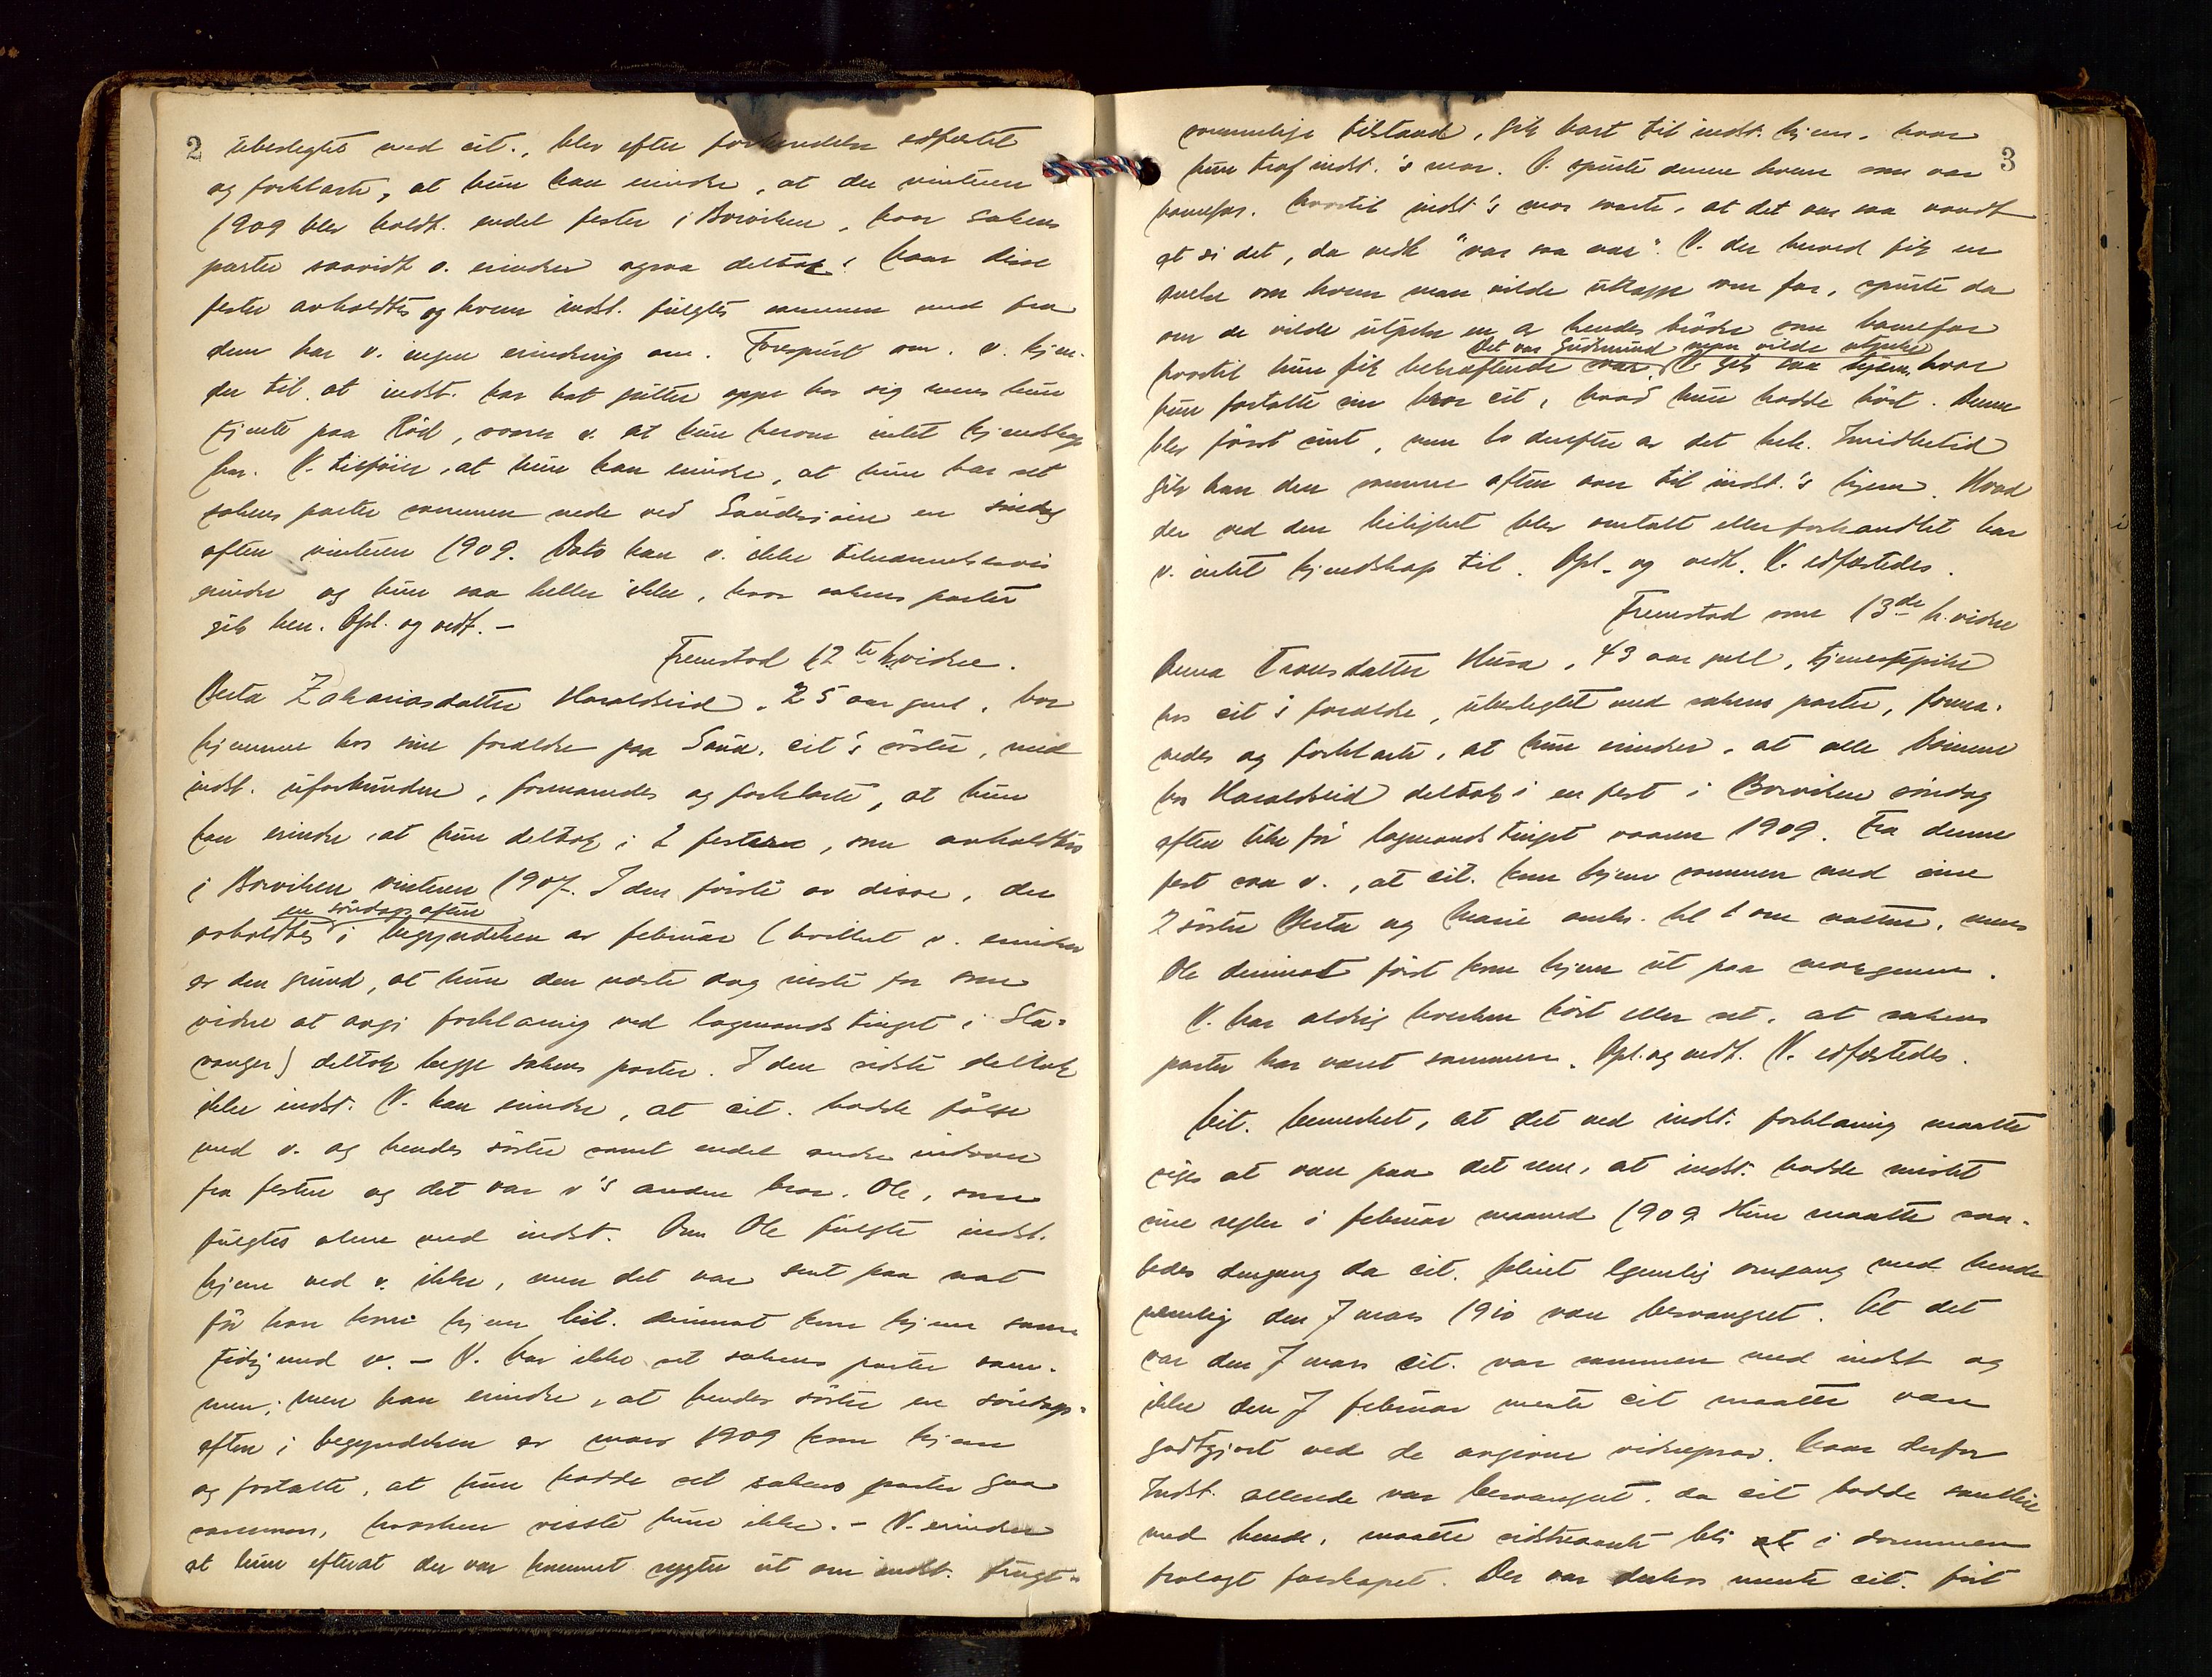 2
ubeslegtet med cit., blev efter forhendelse edfæstet
og forklarte, at hun kan erindre, at der vinteren
1909 blev holdt endel fester i Borviken, hvor sakens
parter saavidt v. erindrer ogsaa deltok. Naar disse
fester avholdtes og hvem indst. fulgtes sammen med fra
dem har v. ingen erindring om. Forespurt om v. kjen-
der til at indst. har hat gutter oppe hos sig mens hun
tjente paa Röd, svarer v. at hun herom intet kjendskap
har. V. tilföier, at hun kan erindre, at hun har set
sakens parter sammen nede ved Sandsjöen en söndag
aften vinteren 1909. Dato kan v. ikke tilnærmelsesvis
erindre og hun saa heller ikke, hvor sakens parter
gik hen. Opl. og vedt. –
Fremstod 12te vidne.
Berta Zakariasdatter Haraldseid, 25 aar gml., bor
hjemme hos sine forældre paa Saua, cit's söster, med
indst. uforbunden, formanedes og forklarte, at hun
kan erindre, at hun deltok i 2 fester, som avholdtes
i Borviken vinteren 1907. I den förste av disse, der
en söndags aften
avholdtes i begyndelsen av februar (hvilket v. erindrer
av den grund, at hun den næste dag reiste for som
vidne at avgi forklaring ved lagmandstinget i Sta-
vanger) deltok begge sakens parter. I den sidste deltok
ikke indst. V. kan erindre, at cit. hadde fölge
med v. og hendes söster samt endel andre indover
fra festen og det var v's anden bror, Ole, som
fulgtes alene med indst. Om Ole fulgte indst.
hjem ved v. ikke, men det var sent paa nat
för han kom hjem. Cit. derimot kom hjem sam-
tidig med v. – V. har ikke set sakens parter sam-
men; men kan erindre, at hendes söster en söndags-
aften i begyndelsen av mars 1909 kom hjem
og fortalte, at hun hadde set sakens parter gaa
sammen, hvorhen visste hun ikke. – V. erindrer
at hun efterat der var kommet rygter ut om indst. frugt-
3
sommelige tilstand, gik bort til indst. hjem, hvor
hun traf indst.'s mor. V. spurte denne hvem som var
barnefar, hvortil indst's mor svarte, at det var saa vondt
at si det, da vedk "var saa var". V. der herved fik en
anelse om hvem man vilde utlægge som far, spurte da
om de vilde utpeke en av hendes brödre som barnefar
det var Gudmund man vilde utpeke
hvortil hun fik bekræftende svar. V. gik saa hjem, hvor
hun fortalte sin bror cit, hvad hun hadde hört. Denne
blev först sint, men lo derefter av det hele. Imidlertid
gik han den samme aften over til indst.'s hjem. Hvad
der ved den leilighet blev omtalt eller forhandlet har
v. intet kjendskap til. Opl. og vedt. V. edfæstedes.
Fremstod som 13de h.vidne
Anna Transdatter Husa, 43 aar gml, tjenestepike
hos cit's forældre, ubeslegtet med sakens parter, forma-
nedes og forklarte, at hun erindrer, at alle barnene
hos Haraldseid deltok i en fest i Borviken söndag
aften like för lagmandstinget vaaren 1909. Fra denne
fest saa v., at cit. kom hjem sammen med sine
2 söstre Berta og Marie omkr. kl 1 om natten, mens
Ole derimot först kom hjem ut paa morgenen.
V. har aldrig hverken hört eller set, at sakens
parter har været sammen. Opl. og vedt. V. edfæstedes.
Cit. bemerket, at det ved indst. forklaring maatte
siges at være paa det rene, at indst. hadde mistet
sine regler i februar maaned 1909. Hun maatte saa-
ledes dengang da cit. pleiet legemlig omgang med hende
nemlig den 7 mars 1910 være besvangret. At det
var den 7 mars cit. var sammen med indst og
ikke den 7 februar mente cit maatte være
godtgjort ved de avgivne vidneprov. Naar derfor
Indst. allerede var besvangret, da cit hadde samleie
med hende, maatte sidstnævnte bli at i dommen
fralagt farskapet. Der var derhos mente cit. fört